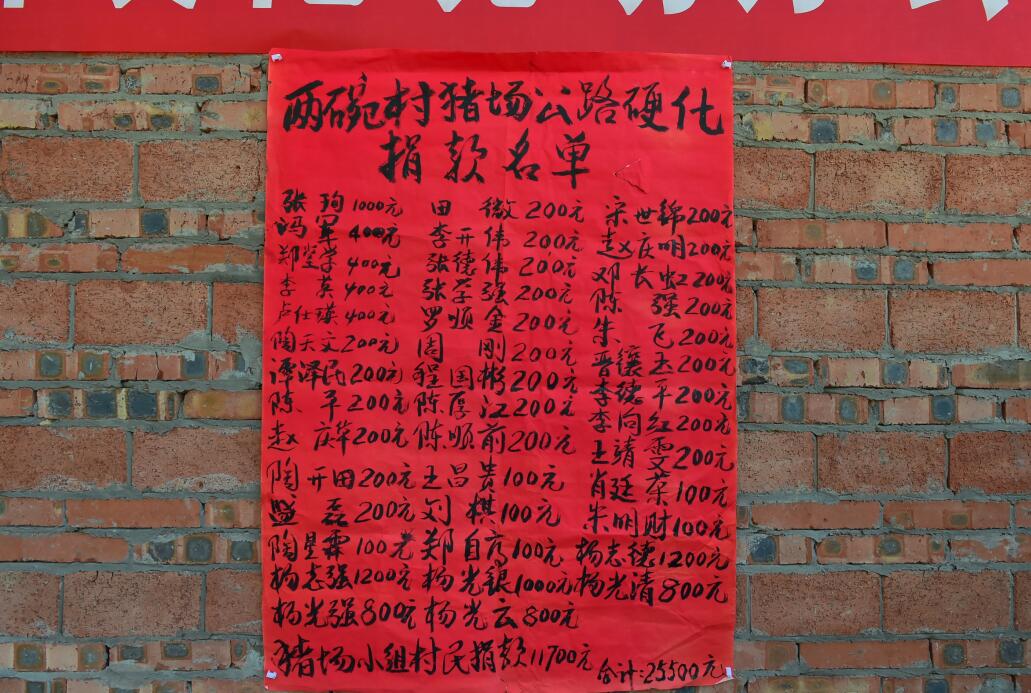 两碗村猪场公路硬化
捐款名单
张珣1000元 田微200元 宋世锦200元
冯军400元 李开伟200元 赵庆明200元
郑学400元 张德伟200元 邓长虹200元
李英400元 张学强200元 陈强200元
卢仕瑛400元 罗顺金200元 朱飞200元
陶天文200元 周刚200元 晋德200元
谭泽民200元 程国彬200元 李德平200元
陈平200元 陈厚江200元 李向红200元
赵庆华200元 陈顺前200元 王靖雯200元
陶开田200元 王昌贵100元 肖廷荣100元
盛磊200元 刘棋100元 朱明财100元
陶星霖100元 郑自高100元 杨志德1200元
杨志强1200元 杨光银1000元 杨光清800元
杨光强800元 杨光云800元
猪场小组村民捐款11700元 合计:25500元